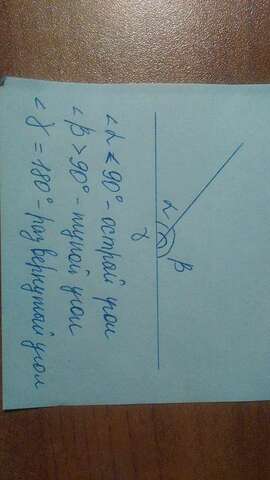 ∠α < 90° - острый угол
∠β > 90° - тупой угол
∠γ = 180° - развернутый угол
α
β
γ